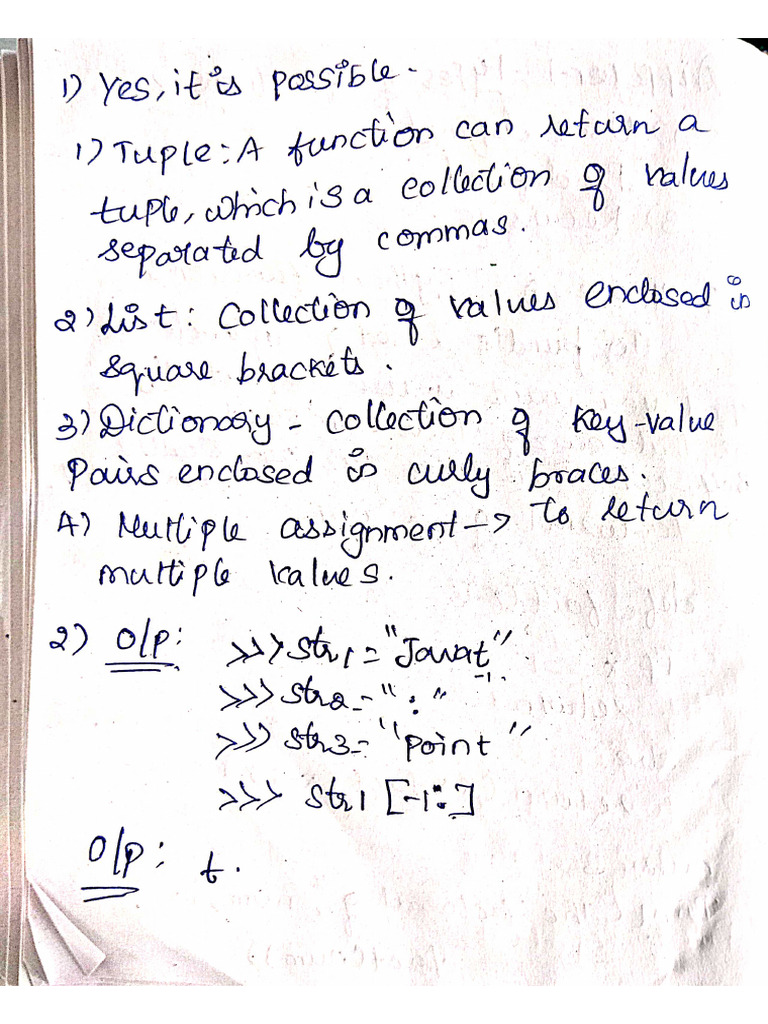 1) Yes, it is possible.
1) Tuple: A function can return a
tuple, which is a collection of values
separated by commas.
2) List: Collection of values enclosed in
square brackets.
3) Dictionary - collection of key-value
Pairs enclosed in curly braces.
4) Multiple assignment -> to return
multiple values.
2) O/p: >>> str1 = "Javat"
-1.
>>> str2 = ":"
>>> str3 = "point"
>>> str1 [-1:]
O/p: t.